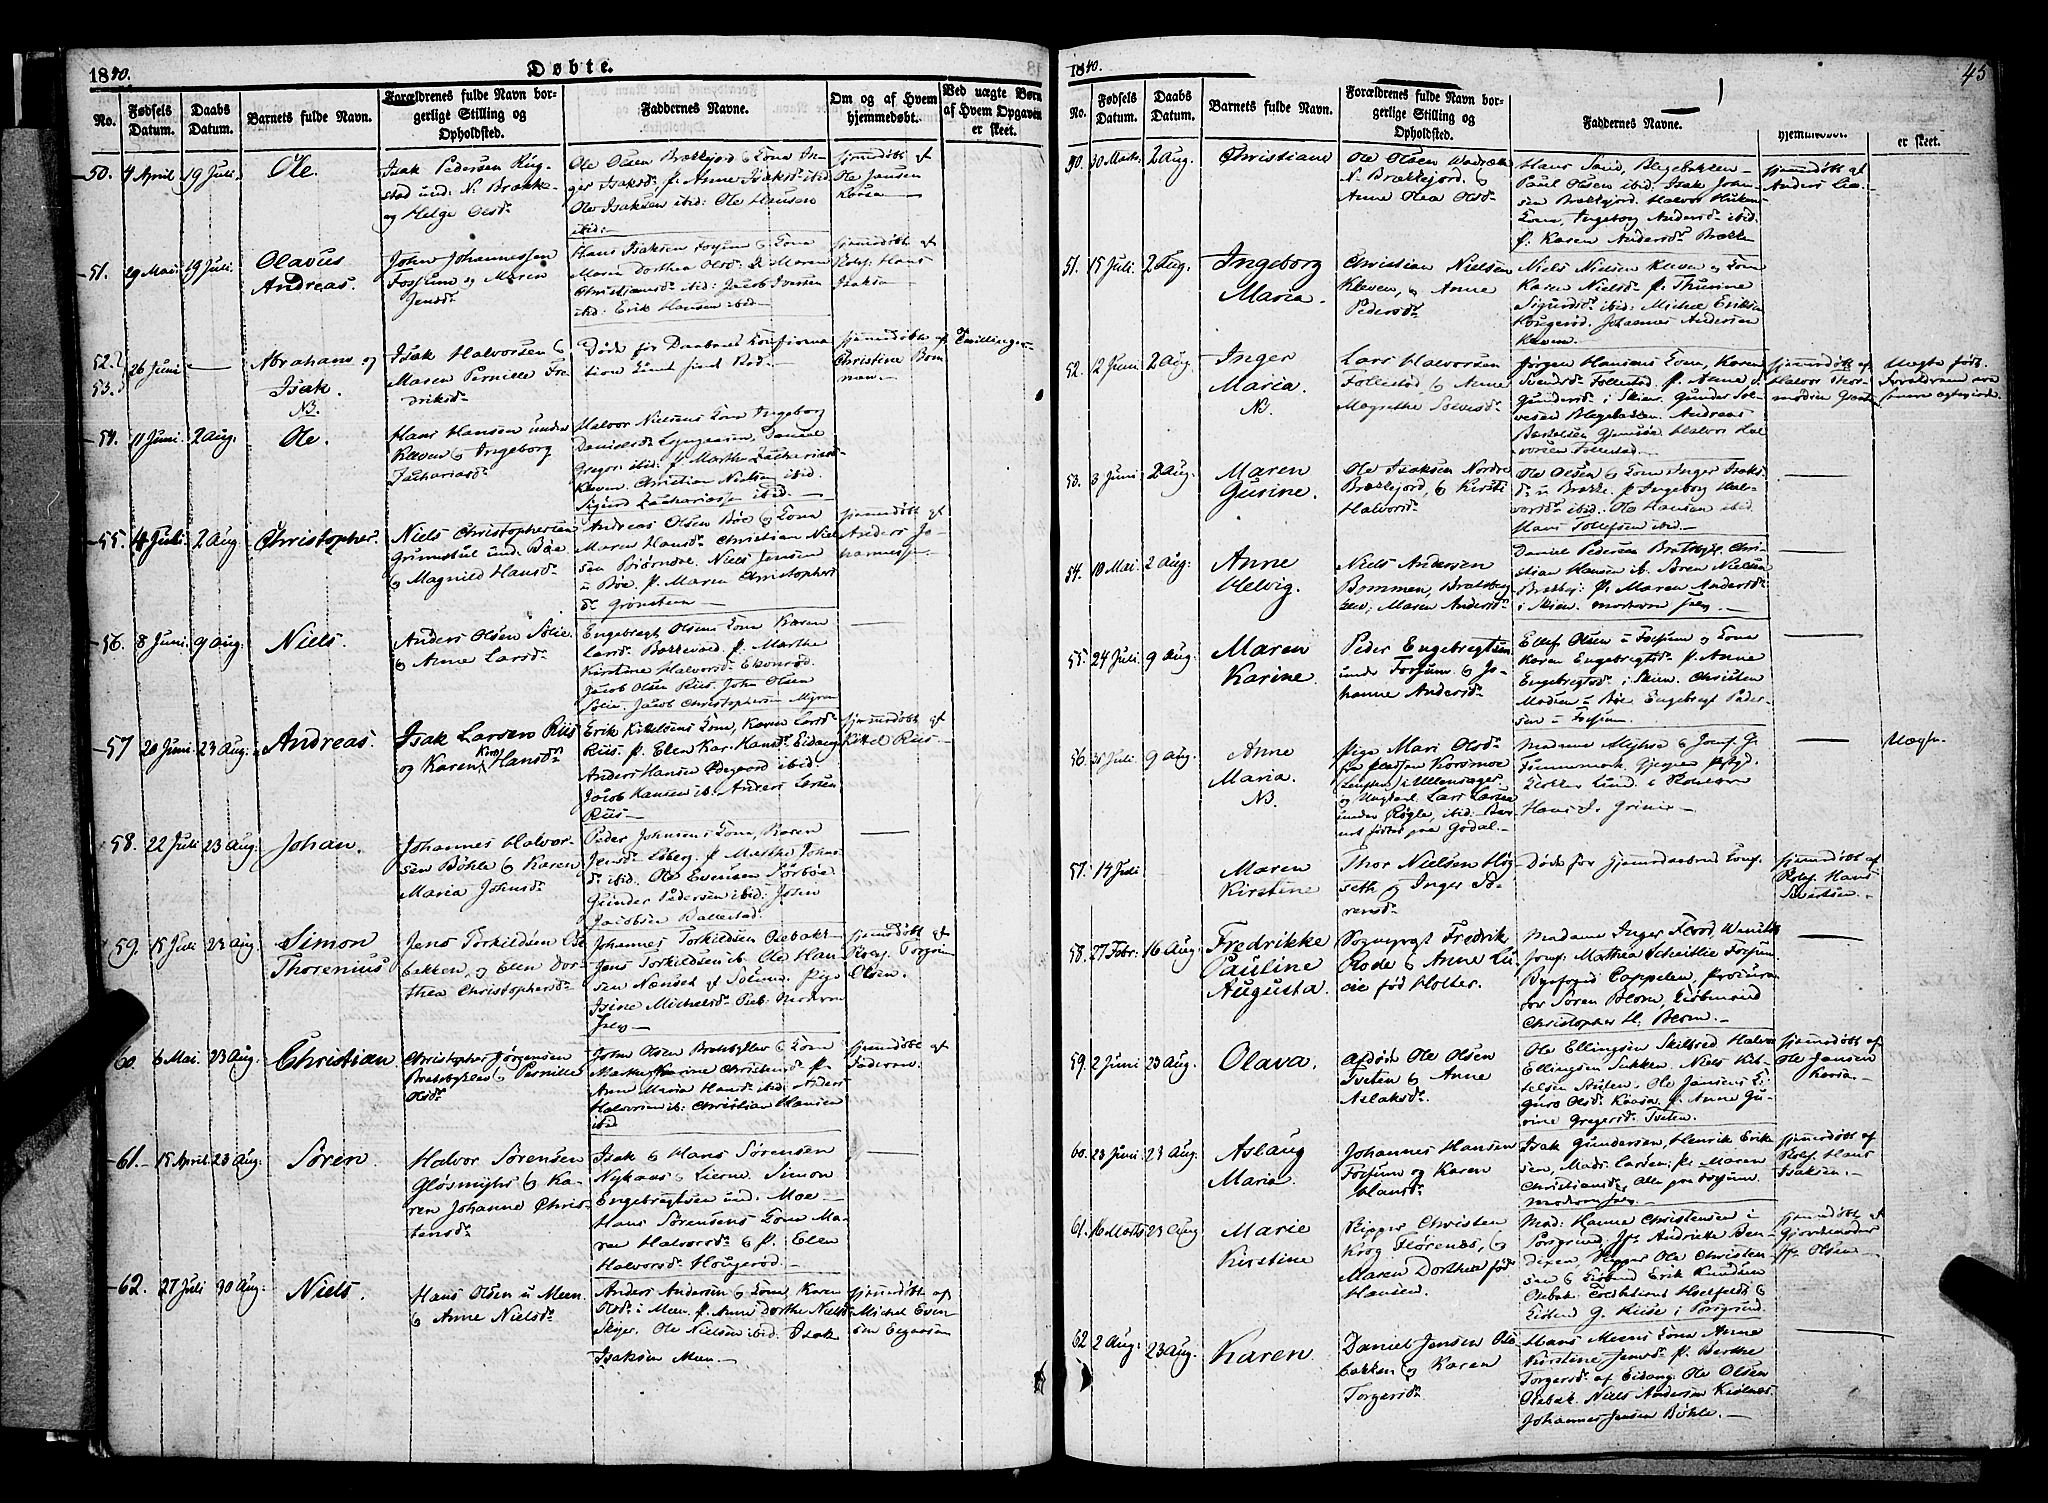 1840.
Døbte.
No.
Fødsels Datum.
Daabs Datum.
Barnets fulde Navn.
Forældrenes fulde Navn borgerlige Stilling og Opholdsted.
Faddernes Navne.
Om og af Hvem hjemmedøbt.
Ved uægte Børn af Hvem Opgaven er skeet.
50. 4 April 19 Juli. Ole.
Isak Pedersen
stad und. N. Brække
og Helge Olsdr
Ole Olsen Brækkejord & Kone In-
ger Isaksdr p. Anne Isaksdr ibid.
Ole Isaksen ibid: Ole Hansen
ibid:
hjemmedøbt af
Ole Jansen
Kaasa
51. 29 Mai 19 Juli. Olavus
Andreas.
John Johannessen
Fossum og Maren
Jensdr
Hans Isaksen Fossum & Kone
Maren Dorthea Olsdr: p. Maren
Christiansdr ibid: Jacob Iversen
ibid: Erik Hansen ibid
hjemmedøbt af
Hans
Isaksen
52. 53. 26 Juni
Abraham og
Isak.
NB.
Isak Halvorsen &
Maren Pernille Fre
driksdr
Døde før Daabens Confirma
tion fandt Sted
hjemmedøbte af
Christine Bom
men.
Tvillinger
54. 11 Juni. 2 Aug. Ole.
Hans Hansen under
Kleven & Ingeborg
Zachariasdr
Halvor Nielsens Kone Ingeborg
Danielsdr
Gregers ibid: p. Marthe Zachariasdr
Kleven. Christian Nielsen ibid.
Sigurd Zachariass. ibid.
55. 4 Juli. 2 Aug Christopher.
Niels Christophersen
Grimstul und. Bøe
& Magnild Hansdr
Andreas Olsen Bøe & Kone
Maren Hansdr Christian Niel
sen Bjørndal. Niels Jensen
u Bøe. p. Maren Christophers
dr Grønsteen
hjemmedøbt af
Anders Jo-
hannessen
56. 8 Juni. 9 Aug. Niels.
Anders Olsen Solie
& Anne Larsdr
Engebregt Olsens Kone Karen
Larsdr Bækkevold. p. Marthe
Kirstine Halvorsdr Ekonrød.
Jacob Olsen Riis. John Olsen
Solie. Jacob Christophersen Myren
57 20 Juni. 23 Aug. Andreas.
Isak Larsen Riis
og Karen Kirs. Hansdr
Erik Kittelsens Kone, Karen Larsdr
Riis. p. Elen Kar. Hansdr Eidang
Anders Hansen Ødegaard ibid.
Jacob Hansen ib. Anders Larsen
Riis
hjemmedøbt af
Kittel Riis
58. 22 Juli 23 Aug: Johan.
Johannes Halvor-
sen Bøhle & Karen
Maria Johnsdr
Peder Johnsens Kone, Karen
Jensdr Esberg. p. Marthe Johns
dr ibid. Ole Evensen Sørbøe
Gunder Pedersen ibid: John
Jacobsen Ballestad.
59. 15 Juli 23 Aug. Simon
Thorenius
Jens Torkildsen Ose
bakken, og Elen Dor-
thea Christophersdr
Johannes Torkildsen Osebakk-
Jens Torkildsen ib. Ole Han
sen Nenset af Solum. Pige
Isine Michelsdr Oseb. Moderen
selv
hjemmedøbt af
Torgrim
Olsen.
60. 6 Mai. 23 Aug. Christian
Christopher Jørgensen
Bratsbyklev & Pernille
Olsdr
John Olsen Bratsbyklev & Kone
Marthe Karine Christensdr p.
Ane Maria Hansdr ibid: Anders
Halvorsen ib. Christian Hansen
ibid
hjemmedøbt af
Faderen.
61. 15 April. 23 Aug: Søren.
Halvor Sørensen
Gløsmyhr & Ka-
ren Johanne Chris-
tensdr
Isak & Hans Sørensen
Nyhaus & Lierne. Simon
Engebregtsen und. Moe
Hans Sørensens Kone Ma-
ren Halvorsdr & p. Elen
Halvorsdr Hougerød.
62. 27 Juli 30 Aug: Niels.
Hans Olsen u Meen.
& Anne Nielsdr
Anders Andersen & Kone, Karen
Olsdr i Meen. p. Anne Dorthe Nielsdr
Skyer. Ole Nielsen ibid. Isak
Isaksen Meen
hjemmedøbt af
Michel Even
sen
1840.
45
No.
Fødsels Datum.
Daabs Datum.
Barnets fulde Navn.
Forældrenes fulde Navn borgerlige Stilling og Opholdsted.
Faddernes Navne.
hjemmedøbt.
er skeet.
50. 30 Marts. 2 Aug. Christiane
Ole Olsen
N. Brækkejord. &
Anne Olea Olsdr
Hans Sand, Blegebakken
Paul Olsen ibid. Isak Joan-
sen Brækkejord. Halvor
Kone, Ingeborg Andersdr ibid.
p. Karen Andersdr Brække
hjemmedøbt af
Anders
51. 15 Juli. 2 Aug. Ingeborg
Maria.
Christian Nielsen
Kleven, & Anne
Pedersdr
Niels Nielsen Kleven & Kone
Karen Nielsdr p. Thurine
Sigurdsdr ibid: Michel Eriksen
Hougerød. Johannes Andersen
Kleven.
52. 12 Juni 2 Aug. Inger
Maria.
NB.
Lars Halvorsen
Follestad & Anne
Magrethe Solvesdr
Jørgen Hansens Kone, Karen
Svendsdr Follestad. p. Anne
Gundersdr i Skien. Gunder Sol-
vesen Blegebakken. Andreas
Bertelsen Gjemsøe. Halvor Hal
vorsen Follestad.
hjemmedøbt af
Halvor Thor-
modsen
Uægte født
Forældrene ere
senere ægteviede.
53. 3 Juni 2 Aug. Maren
Gurine.
Ole Isaksen Nordre
Brækkejord, & Kirsti
Halvorsdr
Ole Olsen & Kone Inger Isaks
dr u Brække. p. Ingeborg Hal-
vorsdr ibid. Ole Hansen ibid
Hans Tollefsen ibid.
54. 10 Mai. 2 Aug: Anne
Helvig.
Niels Andersen
Bommen, Bratsberg
klev, Maren Andersdr
Daniel Pedersen Bratsbykl. Chri-
stian Hansen ib. Søren Nielsen
Bratsby: p. Maren Andersdr
i Skien. moderen selv
55. 24 Juli. 9 Aug. Maren
Karine.
Peder Engebregtsen
under Fossum & Jo-
hanne Andersdr
Ellef Olsen u Fossum og Kone
Karen Engebregtsdr p. Anne
Engebregtsdr i Skien. Christen
Madsen u Bøe. Engebregt Peder-
sen u Fossum.
56. 21 Juli. 9 Aug. Anne
Maria.
NB.
Pige Mari Olsdr
fra Pladsen Korsmoe
i Ullensager
og Ungkarl Lars Larsen
under Røgle, ibid: Bar-
net født paa Godal
Madame & Jomf. G.
Hans J. Griner
Uægte
57. 14 Juli Maren
Kirstine
Thor Nielsen Høg
seth og Inger Sø-
rensdr
Døde før Hjemmedaabens Conf.
hjemmedøbt af
Hans
Sivertsen.
58. 27 Febr: 16 Aug: Fredrikke
Pauline
Augusta.
Sogneprest Fredrik
Rode & Anne Lu-
cie født Holter.
Madame Inger Flood
Jomf: Mathea Scheitlie Fossum
Byefogd Cappelen, Procura-
tor Søren Blom, Kiøbmand
Christopher H. Blom.
59. 2 Juni 23 Aug. Olava.
Afdøde Ole Olsen
Tveten & Anne
Aslaksdr.
Ole Ellingsen Skilbred Halvor
Ellingsen Sukken Niels Kit-
telsen Aasten. Ole Jansens K.
Guro Olsdr Kaasa. p. Anne Gu-
rine Gregersdr Tveten.
hjemmedøbt af
Ole Jansen
Kaasa.
60. 23 Juni 23 Aug. Aslaug
Maria.
Johannes Hansen
Fossum og Karen
Hansdr
Isak Gundersen, Henrik Erik
sen, Mads Larsen: p. Maren
Christiansdr, Alle paa Fossum.
moderen selv.
hjemmedøbt af
Hans
Isaksen.
61. 16 Marts 23 Aug Marie
Kirstine
Skipper Christen
Krog Florenæs, &
Maren Dorthea født
Hansen.
Mad: Hanne Christensen i
Porsgrund, Jfr Andrikke Ben-
dixen, Skipper Ole Christen
sen & Kiøbmd Erik Knudsen
Osebak. Toldbetient Hoelfeldt &
Kiøbmd G. Huse i Porsgrund.
hjemmedøbt af
Gjordemoder
Jfr Olsen
62 2 Aug: 23 Aug. Karen.
Daniel Jensen Ose-
bakken og Karen
Torgersdr
Hans Meens Kone Anne
Kirstine Jensdr p. Berthe
Torgersdr af Eidang. Ole Olsen
Osebak. Niels Andersen Kiølnes
Johannes Jensen Bøhle.